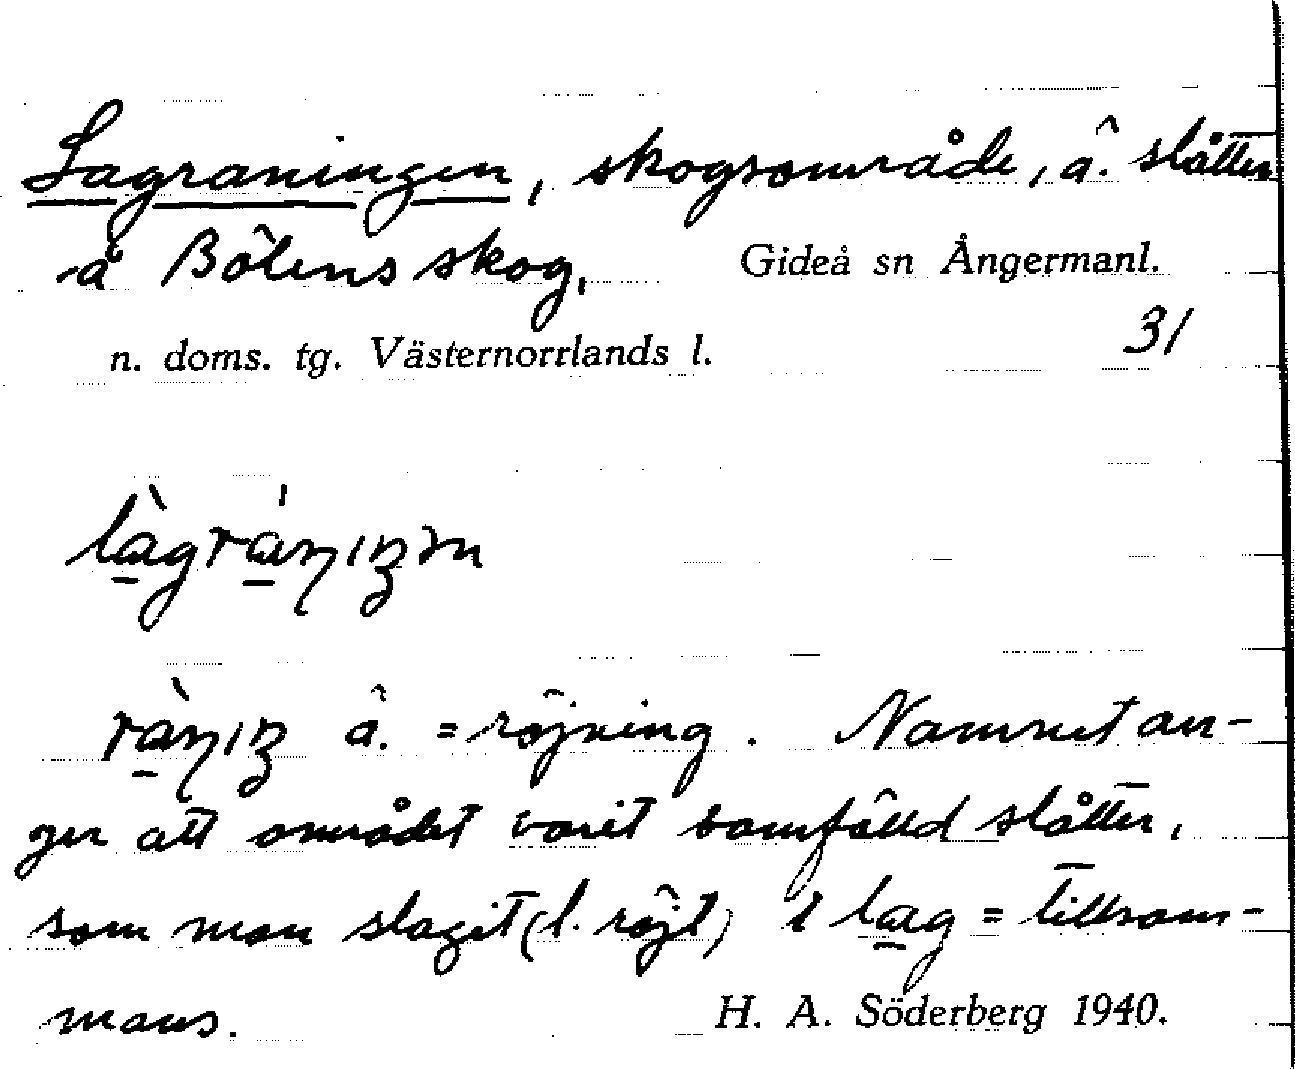 Lagraningen, skogsområde, ä. slåtter
å Bölens skog,
Gideå sn Ångermanl.
31
n. doms. tg. Västernorrlands l.
ä. = röjning. Namnet an-
ger att området varit samfälld slåtter,
som man slagit (l. röjt) i lag = tillsam-
mans.
H. A. Söderberg 1940.